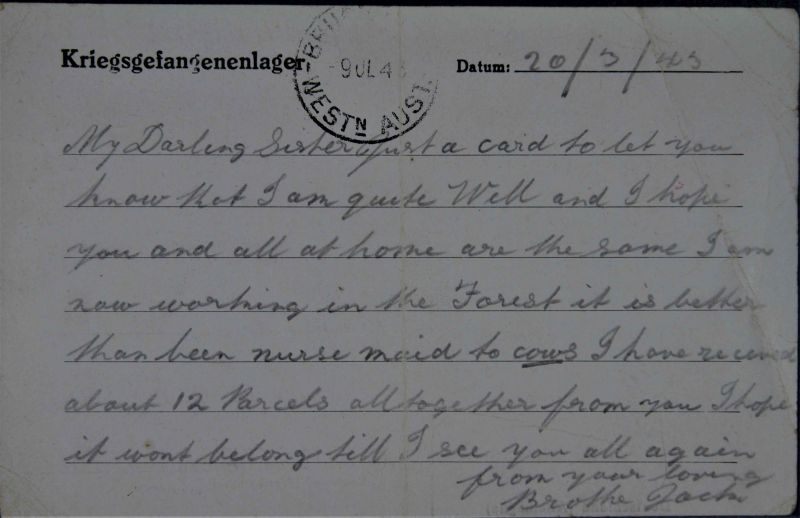 Kriegsgefangenenlager Datum: 20/3/43
9 JL 4
WESTN AUST.
My Darling Sister just a card to let you
know that I am quite Well and I hope
you and all at home are the same I am
now working in the Forest it is better
than been nurse maid to cows I have received
about 12 Parcels alltogether from you I hope
it wont belong till I see you all again
from your loving
Brothe Jack